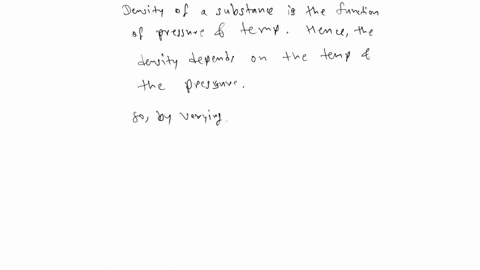 Density of a substance is the function
of pressure & temp. Hence, the
density depends on the temp &
the pressure.
so, by varying.